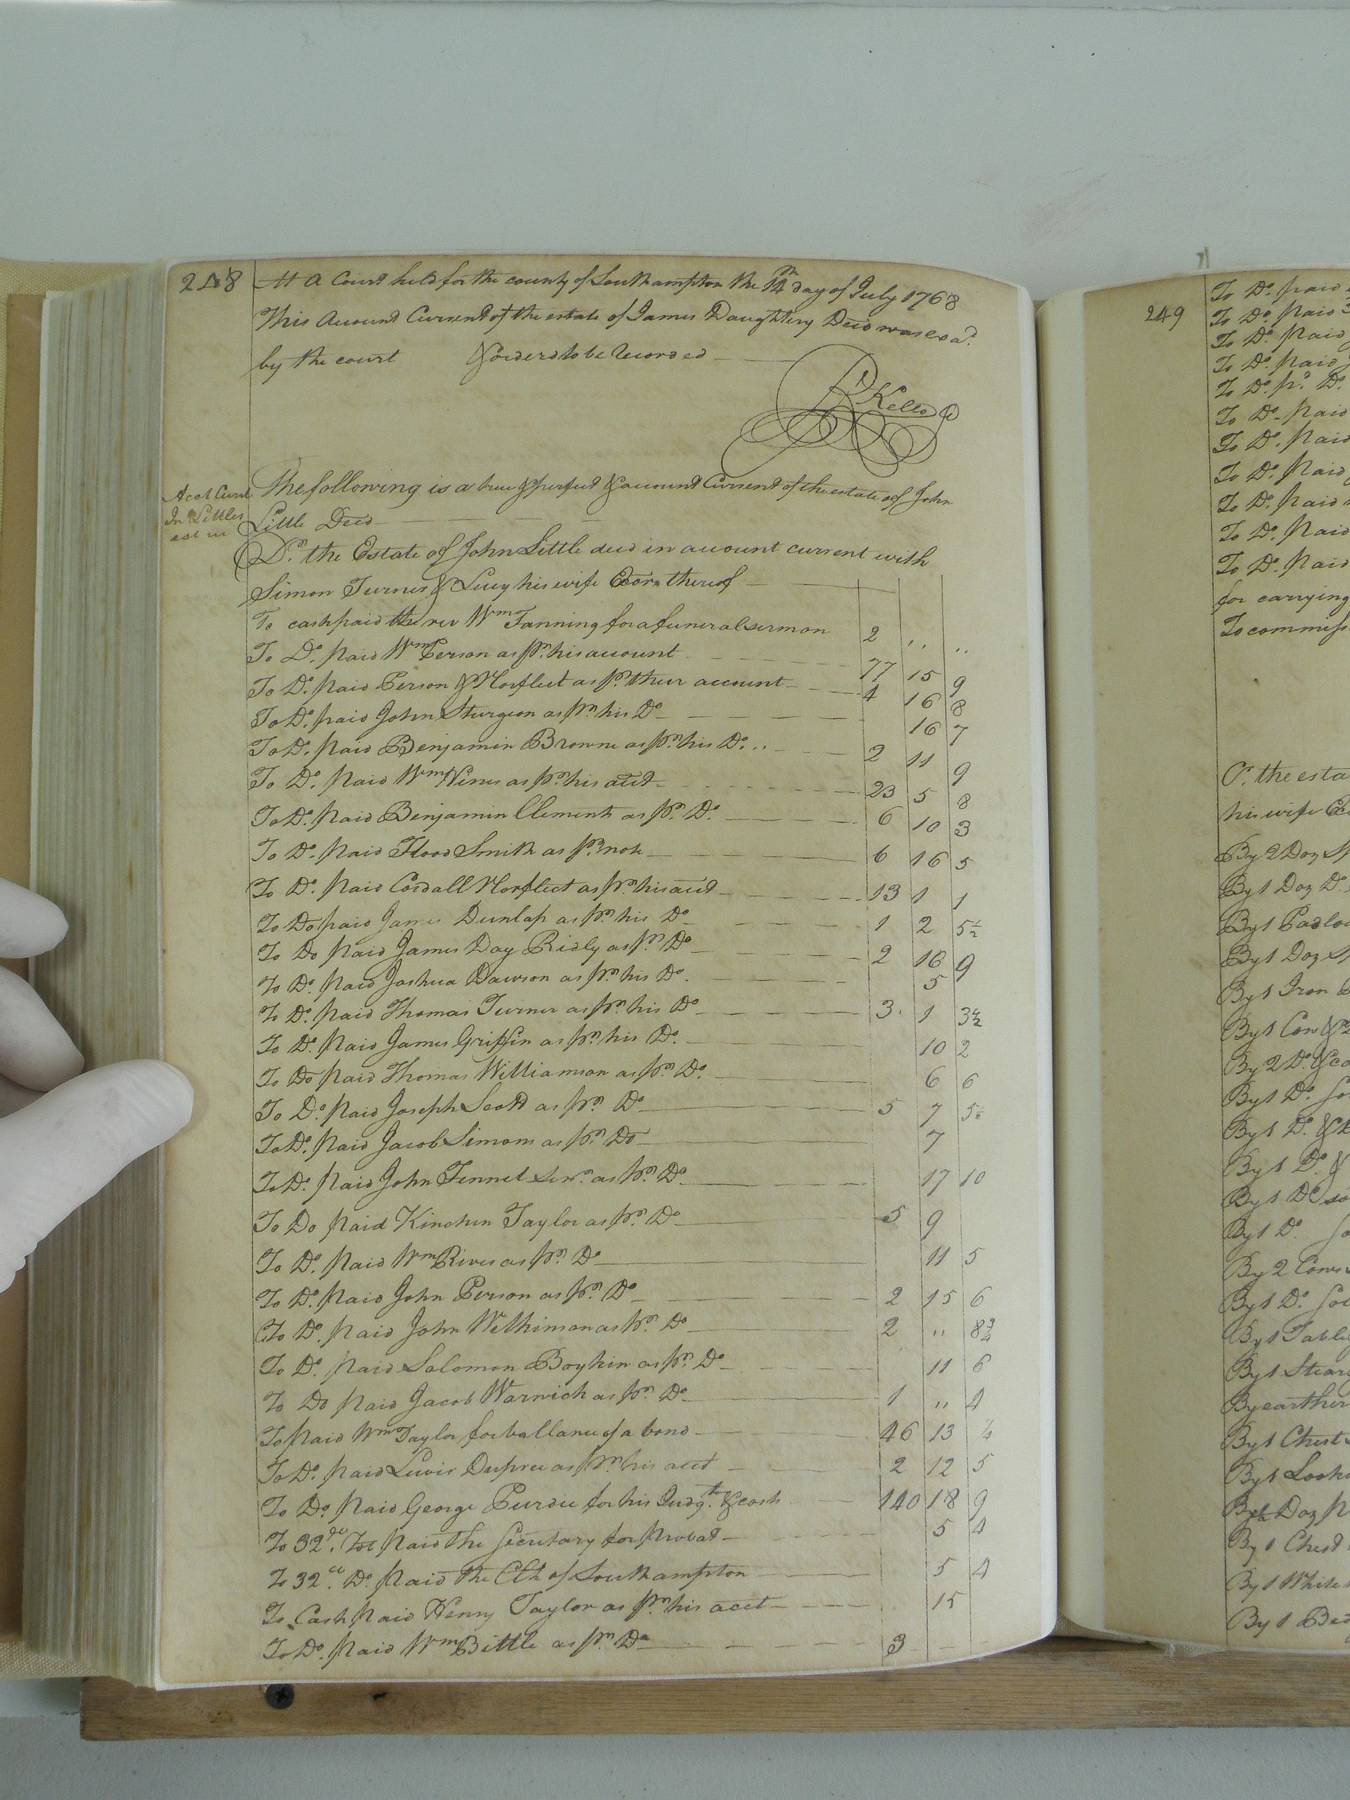 248
At a Court held for the county of Southampton the 14th day of July 1768
This Account Current of the estate of James Daughtery Decd was exad.
by the court & ordered to be Recorded
R Kello
Acct Curt
Jn Littles
est
The following is a true & perfect & account Current of the estate of John
Little Decd
Dr. the Estate of John Little decd in account current with
Simon Turner & Lucy his wife Exors thereof
To cash paid the rev Wm Fanning for a funeral sermon 2 „ „
To Do. Paid Wm Person as pr. his account 77 15 9
To Do. Paid Person & Norfleet as pr. their account 4 16 8
To Do. paid John Sturgeon as pr. his Do 16 7
To Do. Paid Benjamin Browne as pr. his Do. 2 11 9
To Do. Paid Wm Vines as pr. his acct 23 5 8
To Do. Paid Benjamin Clements as pr. Do. 6 10 3
To Do. Paid Flood Smith as pr. note 6 16 5
To Do. Paid Cordall Norfleet as pr. his acct 13 1 1
To Do paid James Dunlap as pr. his Do 1 2 5½
To Do Paid James Day Ridly as pr. Do 2 16 9
To Do. Paid Joshua Dawson as pr. his Do. 5
To Do. Paid Thomas Turner as pr. his Do 3 1 3½
To Do. Paid James Griffin as pr. his Do. 10 2
To Do Paid Thomas Williamson as pr. Do. 6 6
To Do. Paid Joseph Scott as pr. Do 5 7 5½
To Do. Paid Jacob Simons as pr. Do 7
To Do. Paid John Fennel Senr. as pr. Do. 17 10
To Do Paid Kinchen Taylor as pr. Do 5 9
To Do. Paid Wm Rives as pr. Do 11 5
To Do. Paid John Person as pr. Do 2 15 6
To Do. Paid John Wilkinson as pr. Do 2 „ 8¾
To Do. Paid Solomon Boykin as pr. Do 11 6
To Do Paid Jacob Warnich as pr. Do 1 „ 4
To Paid Wm Taylor for ballance of a bond 46 13 ¼
To Do. Paid Lewis Dupree as pr. his acct 2 12 5
To Do. Paid George Purdie for his Judgt. & cost 140 18 9
To 32 Tob Paid the Secretary for Probat 5 4
To 32 Do. Paid the Clk of Southampton 5 4
To Cash Paid Henry Taylor as pr. his acct 15
To Do. Paid Wm Bittle as pr. Do 3
249
To Do. paid
To Do. Paid
To Do. Paid
To Do. Paid
To Do. pd. Do.
To Do. Paid
To Do. Paid
To Do. Paid
To Do. Paid
To Do. Paid
To Do. Paid
for carrying
To commiss
Cr. the esta
his wife Ex
By 2 Doz
By 1 Doz D.
By 1 Padloc
By 1 Doz
By 1 Iron
By 1 Cow &
By 2 Do. &
By 1 Do.
By 1 Do. &
By 1 Do. &
By 1 Do
By 1 Do.
By 2 Cows
By 1 Do.
By 1 Table
By 1 Stear
By earthen
By 1 Chest
By 1 Look
By Doz
By 1 Chest
By 1 White
By 1 Bed